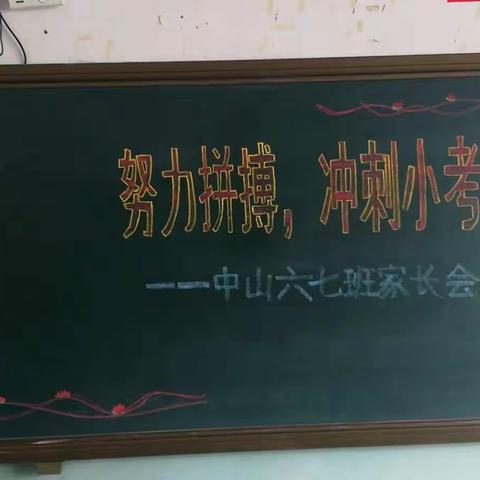 努力拼搏，冲刺小考
——中山六七班家长会